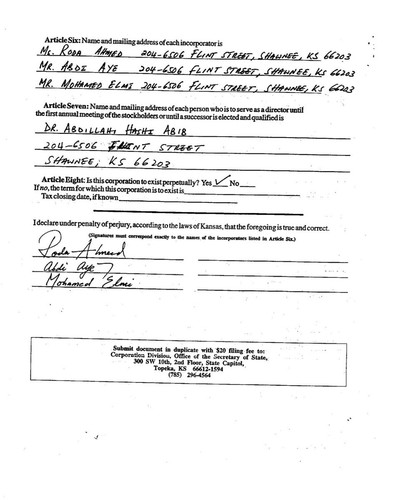 Article Six: Name and mailing address of each incorporator is
MS. RODA AHMED 204-6506 FLINT STREET, SHAWNEE, KS 66203
MR. ABDI AYE 204-6506 FLINT STREET, SHAWNEE, KS 66203
MR. MOHAMED ELMI 204-6506 FLINT STREET, SHAWNEE, KS 66203
Article Seven: Name and mailing address of each person who is to serve as a director until
the first annual meeting of the stockholders or until a successor is elected and qualified is
DR. ABDILLAHI HASHI ABIB
204-6506 FLINT STREET
SHAWNEE, KS 66203
Article Eight: Is this corporation to exist perpetually? Yes ✓ No
If no, the term for which this corporation is to exist is
Tax closing date, if known
I declare under penalty of perjury, according to the laws of Kansas, that the foregoing is true and correct.
(Signatures must correspond exactly to the names of the incorporators listed in Article Six.)
Roda Ahmed
Abdi Aye
Mohamed Elmi
Submit document in duplicate with $20 filing fee to:
Corporation Division, Office of the Secretary of State,
300 SW 10th, 2nd Floor, State Capitol,
Topeka, KS 66612-1594
(785) 296-4564